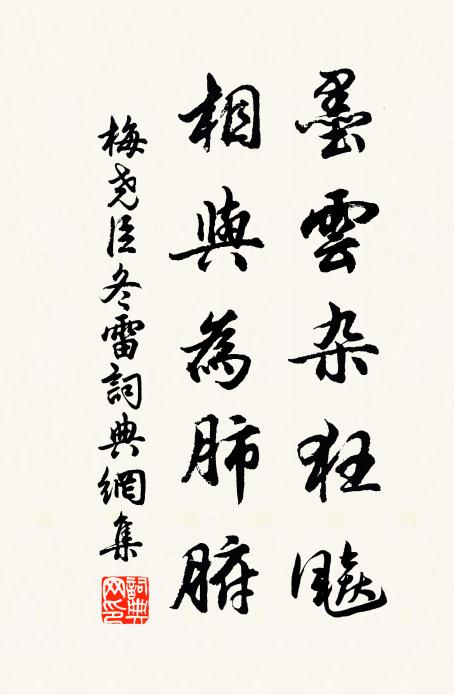 墨雲杂狂飈
相與為肺腑
梅尧臣冬雷詞典網集
詞典
网印